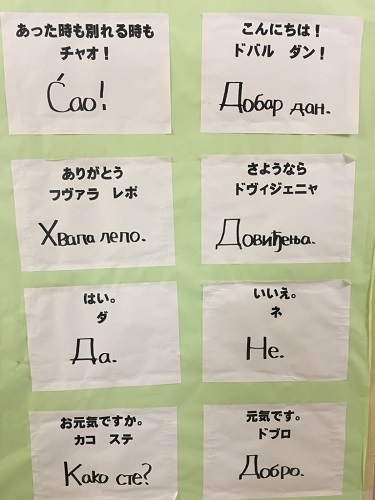 あった時も別れる時も
チャオ！
Ćao!
こんにちは！
ドバル　ダン！
Добар дан.
ありがとう
フヴァラ　レポ
Хвала лепо.
さようなら
ドヴィジェニャ
Довиђења.
はい。
ダ
Да.
いいえ。
ネ
Не.
お元気ですか。
カコ　ステ
Како сте?
元気です。
ドブロ
Добро.